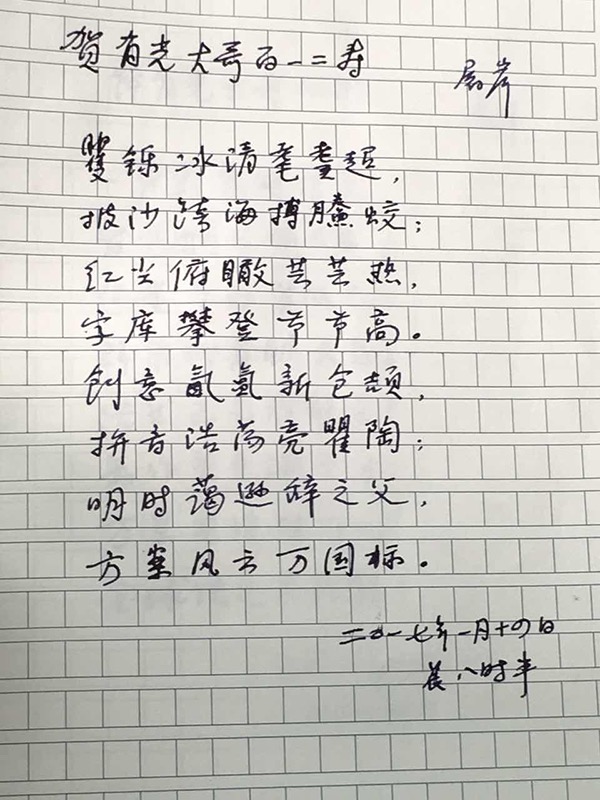 贺有光大哥百一二寿
屠岸
矍铄冰清耄耋超，
披沙跨海搏腾蛟；
红尘俯瞰芸芸热，
字库攀登节节高。
创意氤氲新仓颉，
拼音浩荡亮瞿陶；
明时蔼逊辞之父，
方案风云万国标。
二〇一七年一月十四日
晨八时半